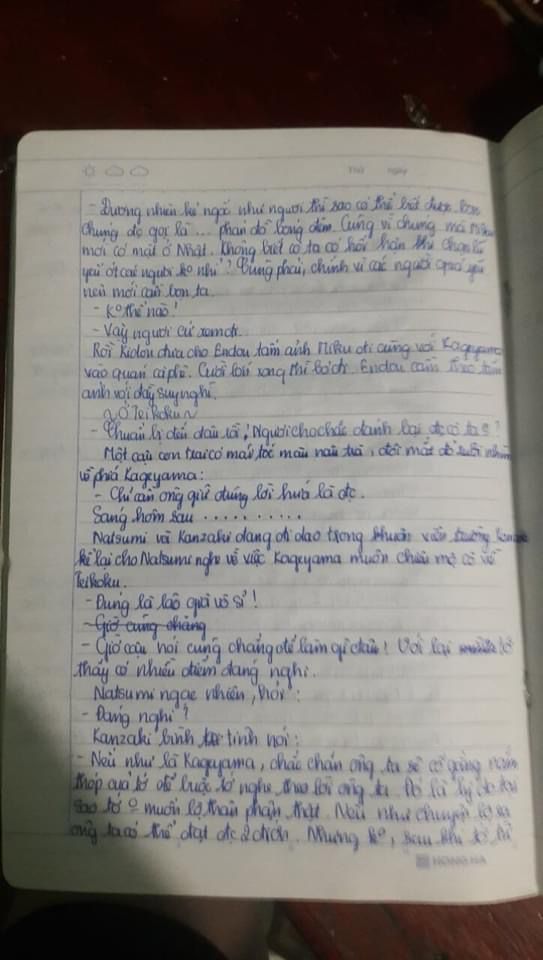 Thứ ngày
- Đương nhiên kẻ ngốc như ngươi thì sao có thể biết được bọn
chúng đc gọi là ... phản đồ bóng đêm. Cũng vì chúng mà Miku
mới có mặt ở Nhật. Không biết cô ta có hối hận khi chọn lũ
yếu ớt các người ko nhỉ? Đúng phải, chính vì các người quá yếu
nên mới cần bọn ta.
- Ko thể nào!
- Vậy ngươi cứ xem đi.
Rồi Kidou đưa cho Endou tấm ảnh Miku đi cùng với Kageyama
vào quán cà phê. Cười xong thì bỏ đi. Endou cầm theo tấm
ảnh với đầy suy nghĩ.
~Ở Teikoku~
- Thuần lý đến đâu rồi! Ngươi cho chắc đánh lại đc cô ta?
Một cậu con trai có mái tóc màu nâu trà, đôi mắt đỏ nhìn
về phía Kageyama:
- Chỉ cần ông giữ đúng lời hứa là đc.
Sáng hôm sau ..........
Natsumi và Kanzaki đang đi dạo trong khuôn viên trường
kể lại cho Natsumi nghe về việc Kageyama muốn chiêu mộ cô về
Teikoku.
- Đúng là lão già vô sỉ!
- Giờ cũng chẳng
- Giờ cậu nói cũng chẳng để làm gì đâu! Với lại tớ
thấy có nhiều điểm đáng nghi.
Natsumi ngạc nhiên, hỏi:
- Đáng nghi?
Kanzaki bình tĩnh nói:
- Nếu như là Kageyama, chắc chắn ông ta sẽ cố gắng nắm
thóp của tớ để buộc tớ nghe theo lời ông ta. Đó là lý do tại
sao tớ o muốn lộ thân phận thật. Nếu như chuyện lộ ra
ông ta có thể đạt đc 2 đích. Nhưng ko, sau khi tớ bị
HONG HA